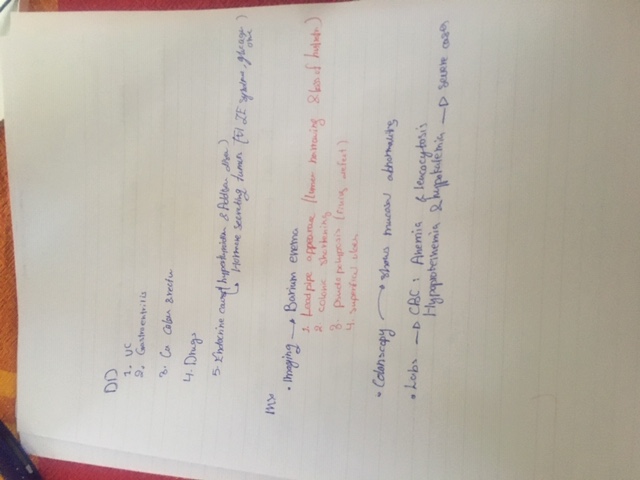 DD
1. UC
2. Gastroenteritis
3. Ca colon & rectum
4. Drugs
5. Endocrine cause (hyperthyroidism & Addison disease)
↳ Hormone secreting tumors (VI ZE syndrome,
Inx
• Imaging → Barium enema
1. Lead pipe appearance (lumen narrowing & loss of haustra)
2. colonic shortening
3. pseudopolyposis (filling defect)
4. superficial ulcers
• Colonoscopy → shows mucosal abnormality
• Labs → CBC: Anemia & leucocytosis
Hypoproteinemia & hypokalemia → severe cases